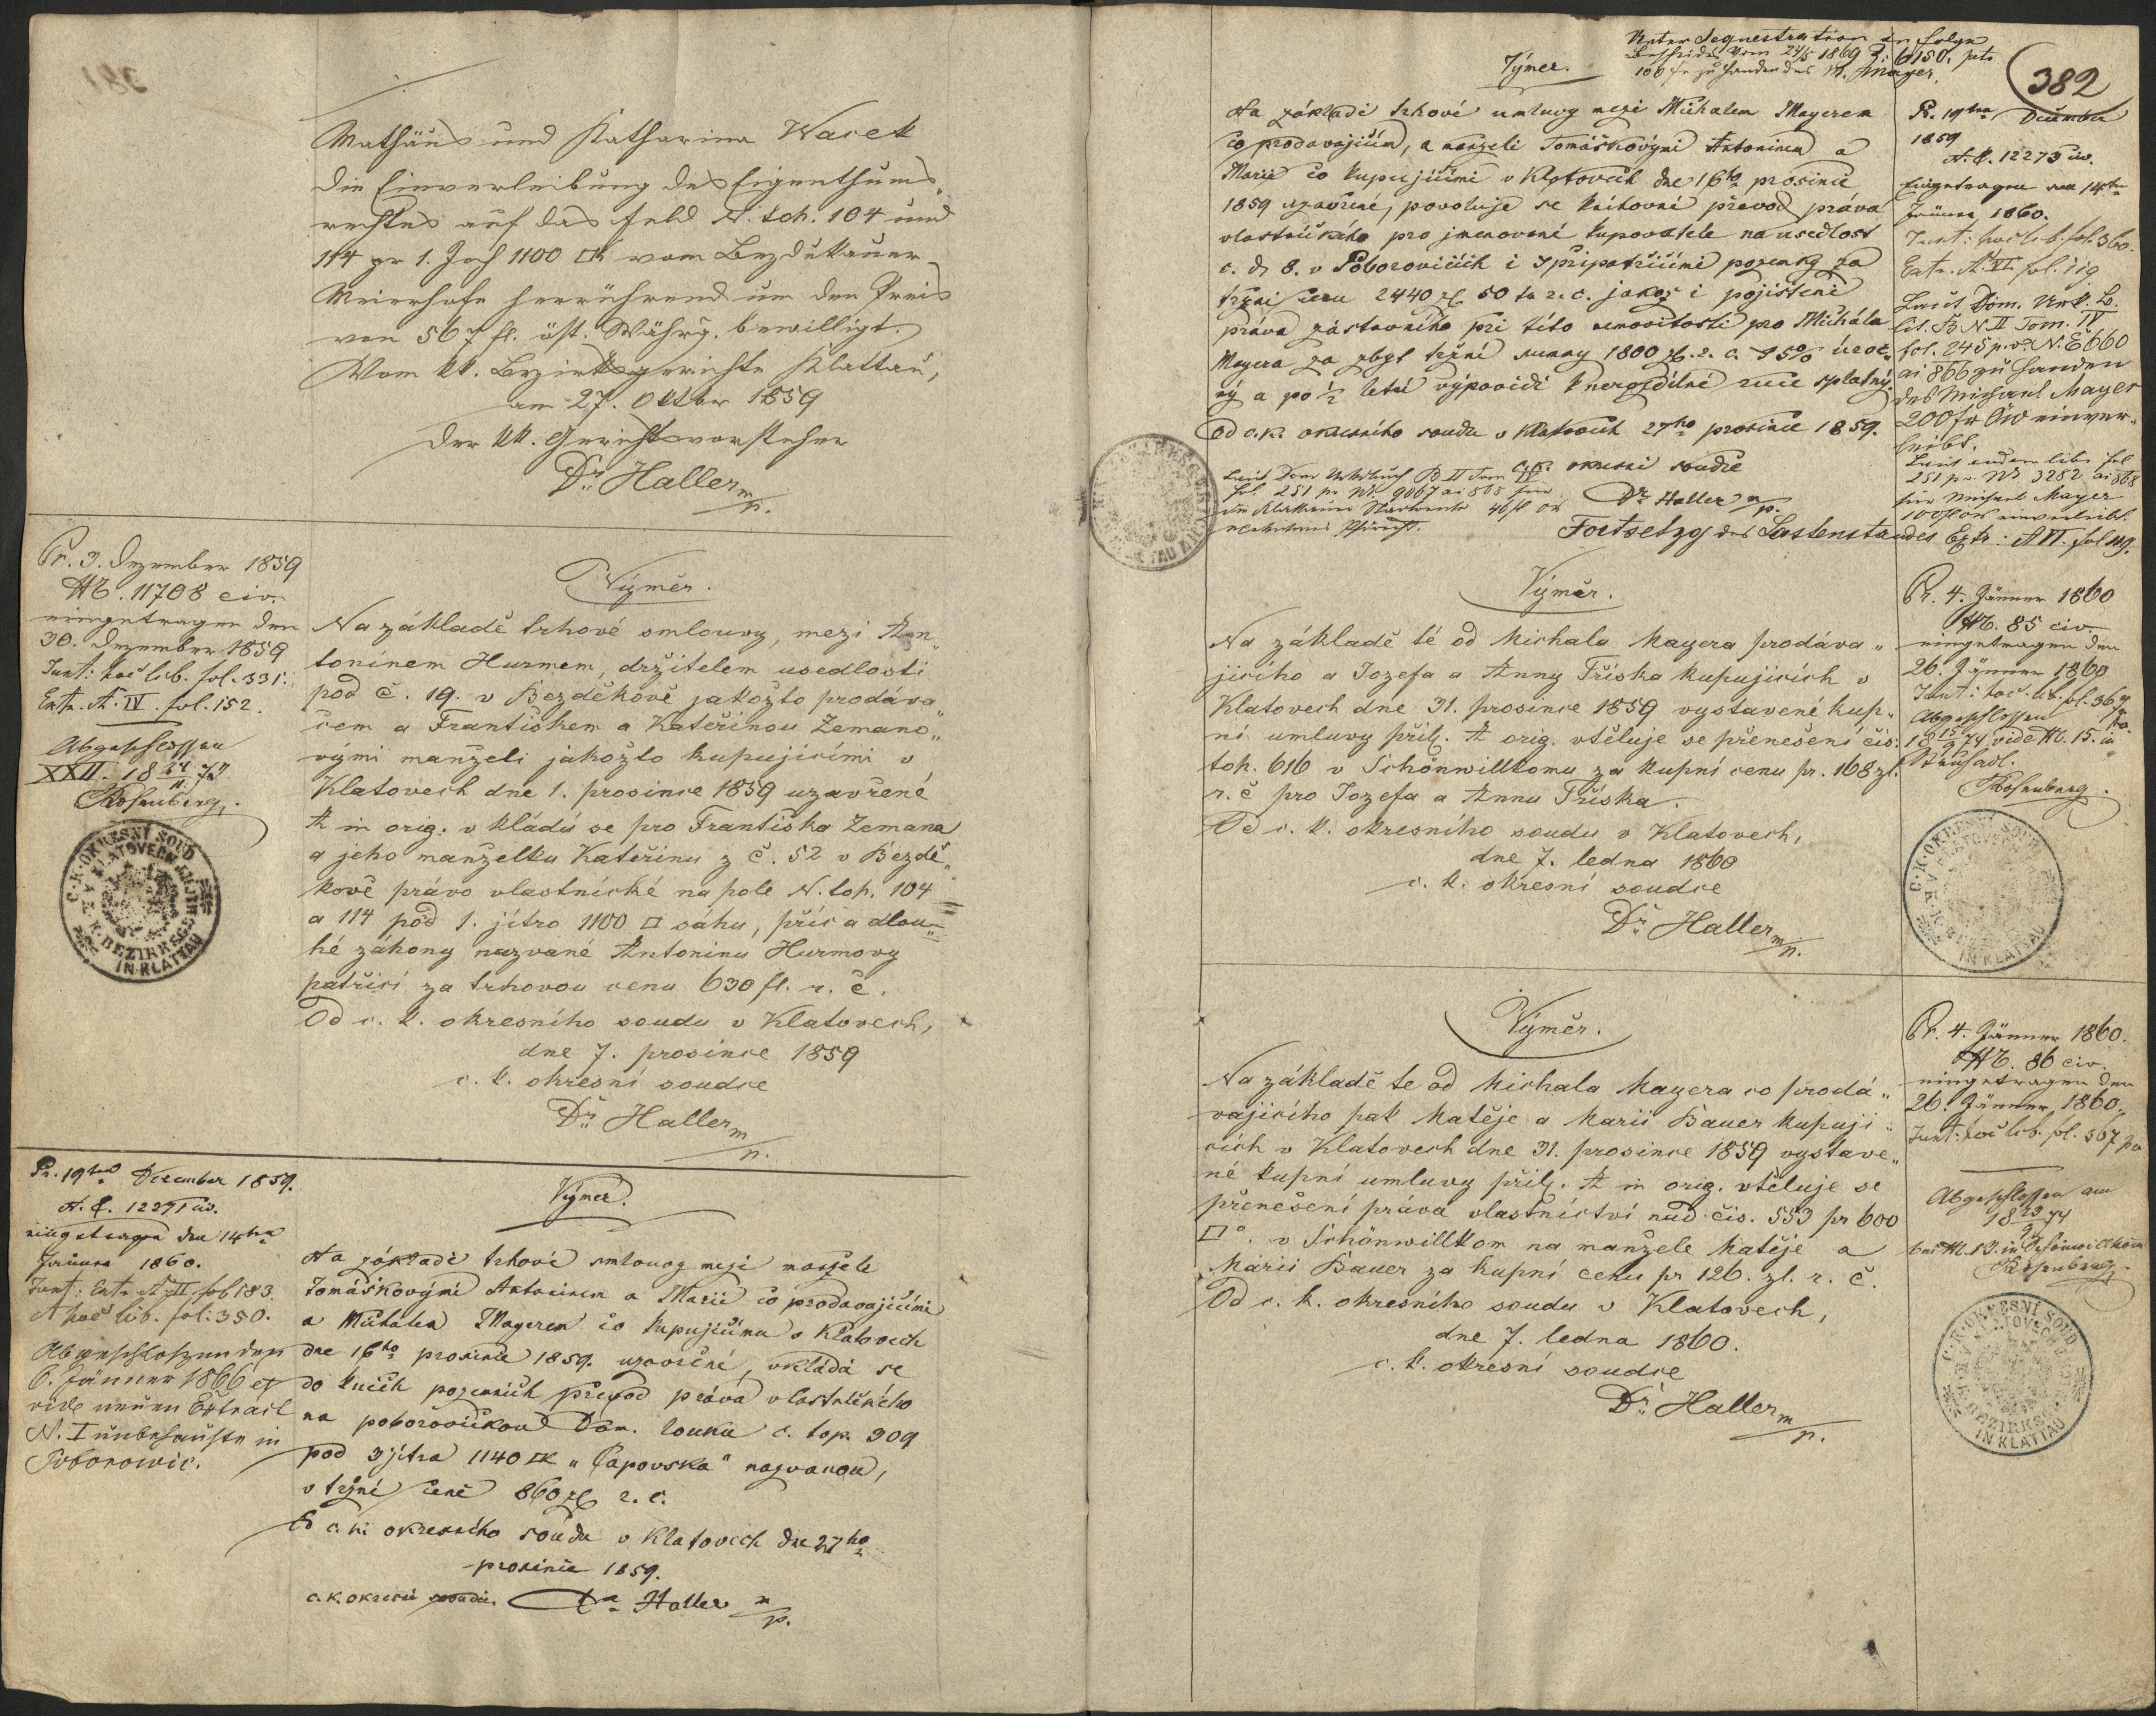 Mathäus und Katharina Wacek
die Einverleibung des Eigenthums„
rechtes auf das Feld N. toh. 104 und
114 pr 1. Joch 1100 □K vom Bezdekauer
Meierhofe herrührend um den Preis
von 567 fl. öst. Währg. bewilligt.
Vom kk. Bezirksgerichte Klattau,
am 27. Oktber 1859
der kk. Gerichtsvorsteher
Dr. Haller m/p.
Pr. 3. Dezember 1859
NE. 11708 civ.
eingetragen den
30. Dezember 1859
Inst: hoc lib. fol. 331.
Extr. A. IV. fol. 152.
Abgeschlossen
XXII. 18 24/11 77
Rosenberg
C. K. OKRESNÍ SOUD
V KLATOVECH
K. K. BEZIRKSGERICHT
IN KLATTAU
Výměr.
Na základě trhové smlouvy, mezi An„
tonínem Hurmem, držitelem usedlosti
pod č. 19. v Bezděkově jakožto prodáva„
čem a Františkem a Kateřinou Zemano„
vými manželi jakožto kupujícími v
Klatovech dne 1. prosince 1859 uzavřené
A in orig. v kládá se pro Františka Zemana
a jeho manželku Kateřinu z č. 52 v Bezdě„
kově právo vlastnické na pole N. top. 104
a 114 pod 1. jitro 1100 □ sáhu, příc a dlou„
hé záhony nazvané Antoninu Hurmovy
patřící za trhovou cenu 630 fl. r. č.
Od c. k. okresního soudu v Klatovech,
dne 7. prosince 1859
c. k. okresní soudce
Dr. Haller m/p.
Pr. 19ten December 1859.
N. E. 12271 civ.
eingetragen den 14ten
Jänner 1860.
Inst: Extr. A III fol 183.
A hoc lib. fol. 350.
Abgeschloszen den
6. Jänner 1866 et
vide neuen Extract
N. I unbehauste in
Poborowic.
Výměr.
Na základě trhové smlouvy mezi manžele
Tomáškovými Antonínem a Marií co prodavajícími
a Michalem Mayerem co kupujícímu v Klatovech
dne 16ho prosince 1859. uzavřené, vkládá se
do knih pozemních převod práva vlastnického
na poborovickou Dom. louku č. top. 309
pod 3 jitra 1140 □K „Čapovska" nazvanou,
v tržní ceně 860 zl r. č.
Od c. k. okresního soudu v Klatovech dne 27ho
prosince 1859.
c. k. okresní soudce. Dr. Haller m/p.
Unter Sequestration in Folge
Bescheides vom 24/5 1869 Z: 6150. pto
100 fr zu Handen des M. Mayer
382
Výměr.
Na základě trhové umluvy mezi Michalem Mayerem
co prodavajícím, a manželi Tomáškovými Antonínem a
Marií co kupujícími v Klatovech dne 16ho prosince
1859 uzavřené, povoluje se knihovní převod práva
vlastnického pro jmenované kupovatele na usedlost
č. d 8. v Poborovicích i s připatřícími pozemky za
tržní cenu 2440 zl 50 kr r. č. jakož i pojištění
práva zástavního při této nemovitosti pro Michala
Mayera za zbyt. tržní summy 1800 zl. r. č. s 5% úroč„
ný a po ½ letní výpovědi k nerozdílné ruce splatný.
Od c. k. okresního soudu v Klatovech 27ho prosince 1859.
c. k. okresní soudce
Dr. Haller m/p.
Laut Dom Urkbuch B II Tom IV
fol. 251 pr. Nr. 9067 ai 868 für
Fortsetzg des Lastenstandes Extr: A VI. fol 119.
Pr. 19ten December
1859
N. E. 12273 civ.
Eingetragen den 14ten
Jänner 1860.
Inst: hoc lib. fol. 360.
Extr. A. VI fol. 119
Laut Dom. Urk. B.
lit. B N II Tom. IV
fol. 245 p. v. N. E 660
ai 866 zu Handen
des Michael Mayer
200 fr ÖW einver„
leibt.
Laut eodem libr fol
251 p. v. Nr 3282 ai 868
für Michael Mayer
100 fl ÖW einverleibt.
Výměr.
Na základě té od Michala Mayera prodáva„
jícího a Jozefa a Anny Tříska kupujících v
Klatovech dne 31. prosince 1859 vystavené kup„
ní umluvy příl. A orig. vtěluje se přenešení čís.
top. 616 v Schönwillkomu za kupní cenu pr. 168 zl.
r. č pro Jozefa a Annu Tříska.
Od c. k. okresního soudu v Klatovech,
dne 7. ledna 1860
c. k. okresní soudce
Dr. Haller m/p.
Pr. 4. Jänner 1860
NE. 85 civ
eingetragen den
26. Jänner 1860
Inst: hoc lib. fol. 367
Abgeschlossen
18 15/9 74 vide N. 15. in
Rosenberg.
C. K. OKRESNÍ SOUD
V KLATOVECH
K. K. BEZIRKSGERICHT
IN KLATTAU
Výměr.
Na základě te od Michala Mayera co prodá„
vajícího pak Matěje a Marii Bauer kupují„
cích v Klatovech dne 31. prosince 1859 vystave„
né kupní umluvy příl. A in orig. vtěluje se
přenešení práva vlastnictví nad čís. 553 pr 600
□°. v Schönwillkom na manžele Matěje a
Marii Bauer za kupní cenu pr 126. zl. r. č.
Od c. k. okresního soudu v Klatovech,
dne 7. ledna 1860.
c. k. okresní soudce
Dr. Haller m/p.
Pr. 4. Jänner 1860.
NE. 86 civ.
eingetragen den
26. Jänner 1860.
Inst: hoc lib. fol. 367
Abgeschlossen am
18 23/9 74
N. 13. in Schönwillkom
Rosenberg
C. K. OKRESNÍ SOUD
V KLATOVECH
K. K. BEZIRKSGERICHT
IN KLATTAU